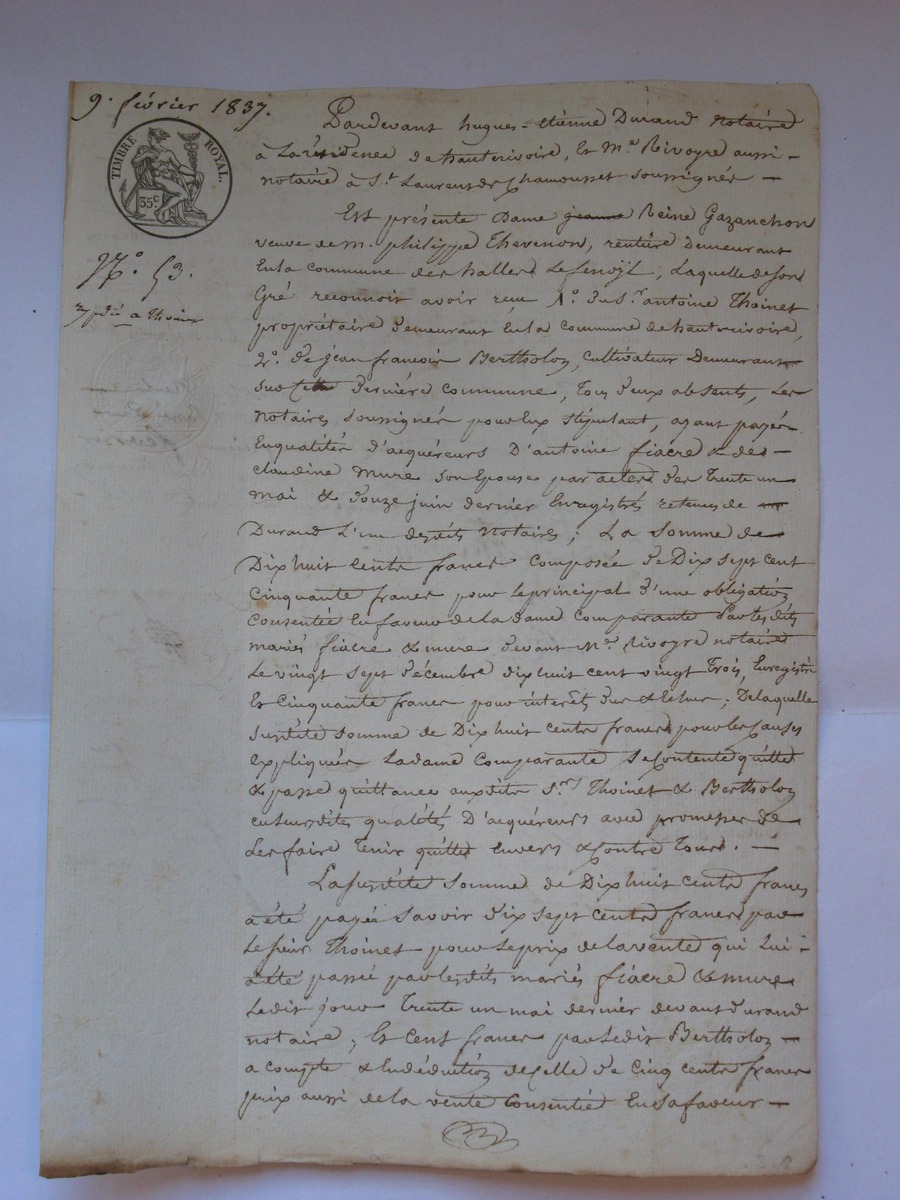 9. février 1837.
TIMBRE ROYAL.
35 c.
N.° 53.
Pardevant hugues-étienne Durand notaire
à La résidence de hauterivoire, Et M.e Rivoyre aussi
notaire à S.t Laurent de Chamousset soussignés
Est présente Dame Reine Gazanchon
veuve de m. philippe Thevenon, rentière demeurant
En la commune des halles Le fenoÿl, Laquelle de son
Gré reconnoit avoir reçu 1.° Du S.r antoine Thoinet
propriétaire demeurant En la commune de hauterivoire,
2.° De jean françois Bertholon, cultivateur Demeurant
sus cette dernière commune, Tous deux absents, Les
notaires soussignés pour Eux stipulant, ayant payés
En qualités D'acquéreurs D'antoine fiacre & de
claudine mure son Epouse par actes des Trente un
mai & Douze juin dernier Enregistrés retenus de
Durand L'un desdits notaires ; La Somme de
Dix huit cents francs Composée de Dix sept cent
cinquante francs pour le principal d'une obligation
consentie En faveur de la dame comparante Par lesdits
mariés fiacre & mure devant M.e Rivoyre notaire
Le vingt sept décembre dix huit cent vingt Trois, Enregistré
Et Cinquante francs pour intérêts Dus & Echus ; De laquelle
susdite somme de Dix huit cents francs pour les causes
Expliquées La dame Comparante Se Contente quitte
& passe quittance auxdits S.rs Thoinet & Bertholon
en susdites qualités D'acquéreurs avec promesse de
Les faire Tenir quittes Envers & Contre Tous.
La susdite somme de Dix huit cents francs
a été payée savoir Dix sept cents francs par
Le sieur Thoinet pour le prix de la vente qui Lui
a été passée par lesdits mariés fiacre & mure
Ledit jour Trente un mai dernier devant Durand
notaire ; Et cent francs par Ledit Bertholon
a compte & En déduction de Celle de Cinq cents francs
prix aussi de la vente consentie En sa faveur